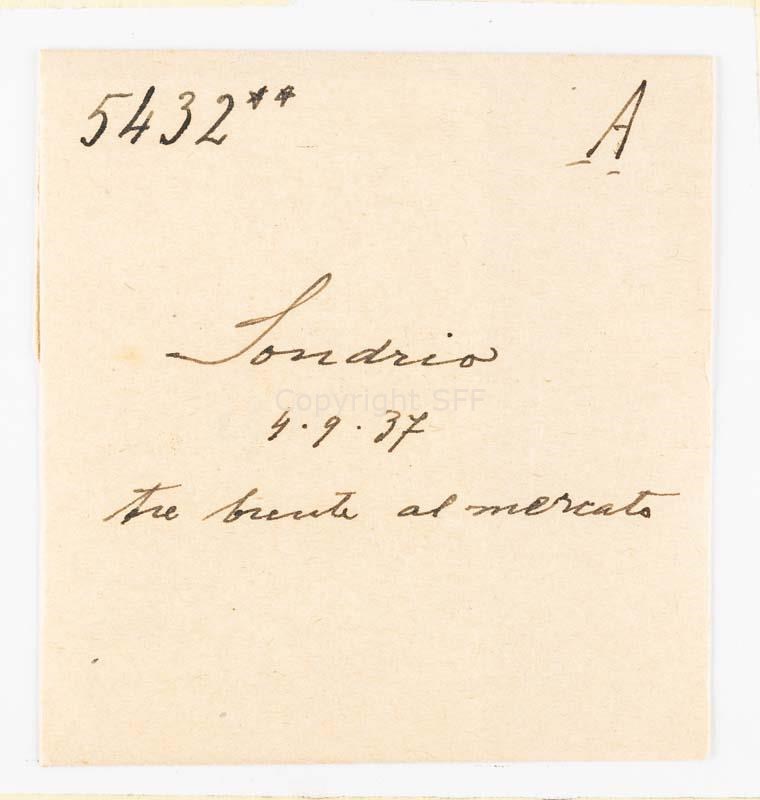 5432** A
Sondrio
Copyright SFF
4.9.37
tre brente al mercato